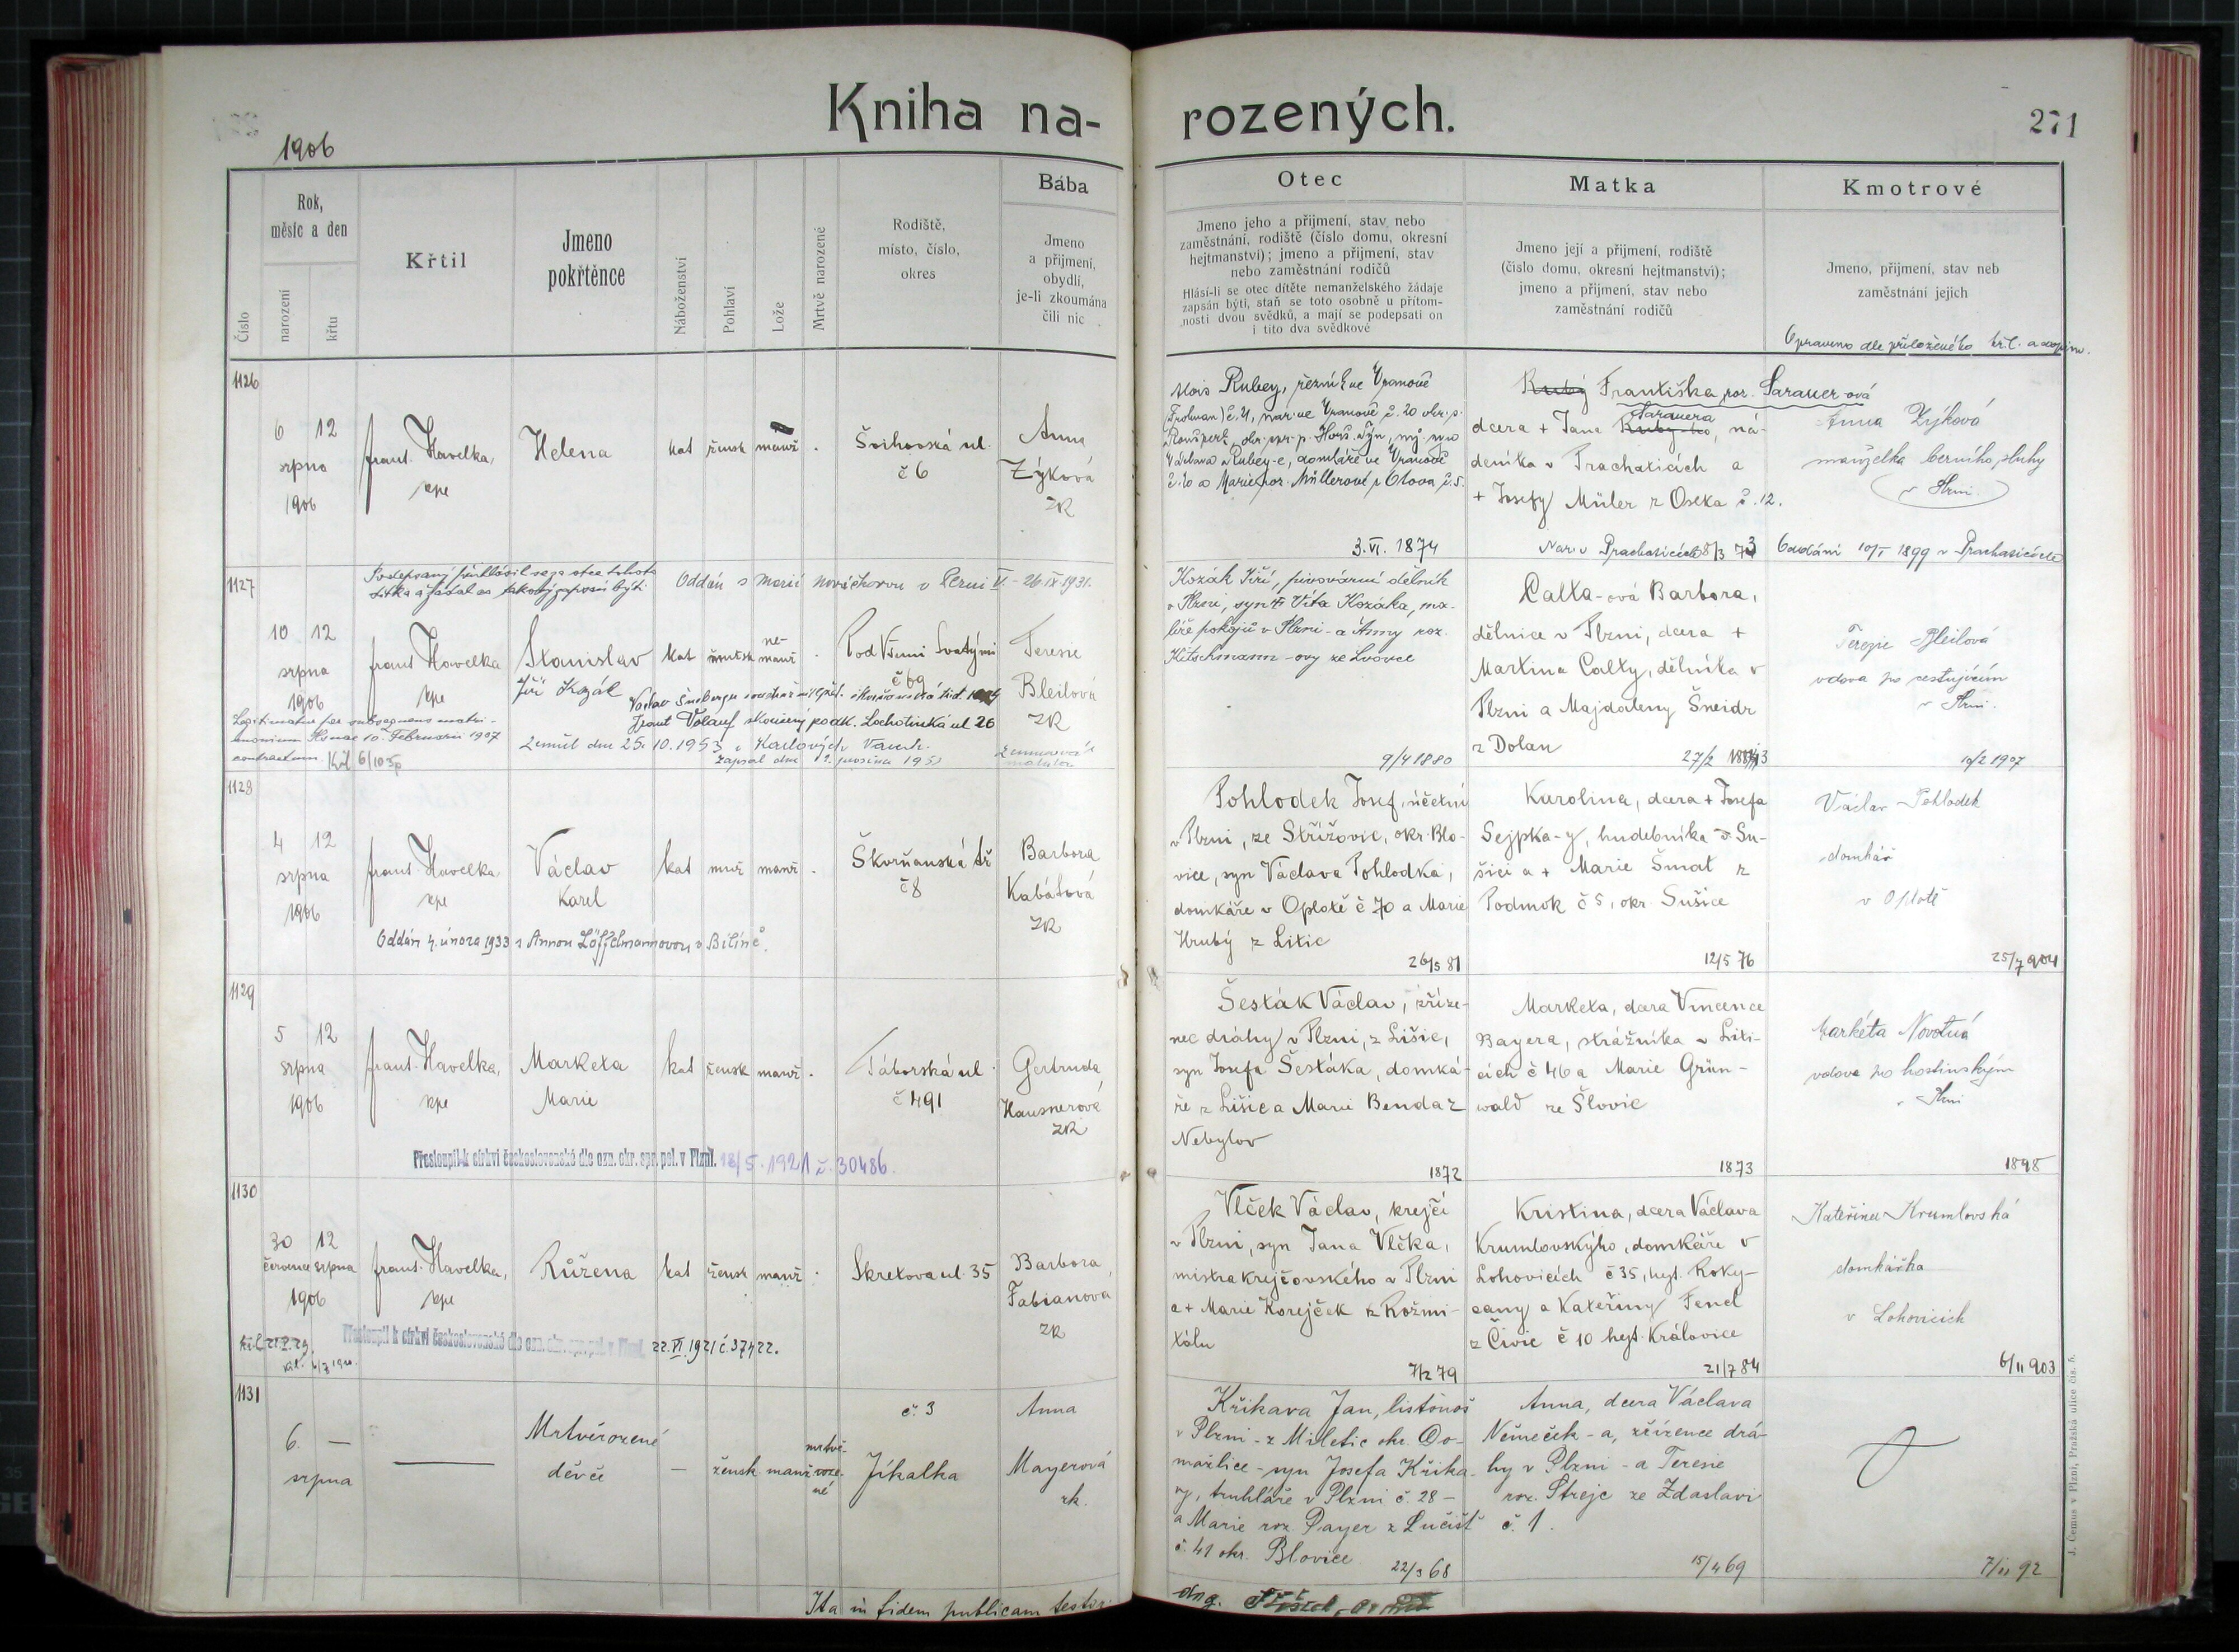 Kniha na-
rozených.
271
1906
Číslo
Rok,
měsíc a den
narození
křtu
Křtil
Jmeno
pokřtěnce
Náboženství
Pohlaví
Lože
Mrtvě narozené
Rodiště,
místo, číslo,
okres
Bába
Jmeno
a přijmení,
obydlí,
je-li zkoumána
čili nic
Otec
Jmeno jeho a přijmení, stav nebo
zaměstnání, rodiště (číslo domu, okresní
hejtmanství); jmeno a přijmení, stav
nebo zaměstnání rodičů
Hlásí-li se otec dítěte nemanželského žádaje
zapsán býti, staň se toto osobně u přítom-
nosti dvou svědků, a mají se podepsati on
i tito dva svědkové
Matka
Jmeno její a přijmení, rodiště
(číslo domu, okresní hejtmanství);
jmeno a přijmení, stav nebo
zaměstnání rodičů
Kmotrové
Jmeno, přijmení, stav neb
zaměstnání jejich
Opraveno dle přiloženého kř. l.
1126
6 12
srpna
1906
frant. Havelka,
kpe
Helena
kat žensk manž .
Švihovská ul.
č 6
Anna
Zýková
ZR
Alois Rubey, řezník ve Vranově
č. 4, nar. ve Vranově č. 20 okr. p.
Ronšperk, okr. spr. p. Horš. Týn, syn
Václava Rubey-e, domkáře ve Vranově
č. 20 a Marie roz. Müllerové z č. 5.
3. VI. 1874
Rubý Františka roz. Sarauer-ová
Sarauera
dcera + Jana Rubý-ho, ná-
deníka v Prachaticích a
+ Josefy Müler z Oseka č. 12.
Nar. v Prachaticích 8/3 73
Anna Zýková
manželka berního sluhy
v Plzni
Oddáni 10/I 1899 v Prachaticích
1127
Podepsaný přihlásil se za otce tohoto
dítka a žádal za takový zapsán býti
Oddán s Marií Nováčkovou v Plzni V. - 26 IX 1931.
10 12
srpna
1906
frant Havelka
kpe
Stanislav
kat mužsk
ne-
manž .
Pod Všemi Svatými
č 69
Teresie
Bleilová
ZR
Jiří Kozák
Frant Volauf skoušený podk. Lochotínská ul 26
Legitimatus per subsequens matri-
monium Plsnae 10. Februarii 1907
contractum.
Zemřel dne 25. 10. 1953 v Karlových Varech.
Zapsal dne 12. prosince 1953
Kozák Jiří, pivovární dělník
v Plzni, syn + Víta Kozáka, ma-
líře pokojů v Plzni - a Anny roz.
Kitschmann-ovy ze Lvovce
9/4 1880
Calta-ová Barbora,
dělnice v Plzni, dcera +
Martina Calty, dělníka v
Plzni a Majdaleny Šneidr
z Dolan
27/2
Terezie Bleilová
vdova po cestujícím
v Plzni.
10/2 1907
1128
4 12
srpna
1906
frant. Havelka,
kpe
Václav
Karel
kat muž manž .
Škvrňanská tř
č 8
Barbora
Kabátová
ZR
Oddán 4. února 1933 s Annou Löffelmannovou v Bílině.
Pohlodek Josef, účetní
v Plzni, ze Střížovic, okr. Blo-
vice, syn Václava Pohlodka,
domkáře v Oplotě č 70 a Marie
Hrubý z Litic
26/5 81
Karolina, dcera + Josefa
Sejpka-y, hudebníka v Su-
šici a + Marie Šmat z
Podmok č 5, okr. Sušice
12/5 76
Václav Pohlodek
domkář
v Oplotě
25/7 904
1129
5 12
srpna
1906
frant. Havelka,
kpe
Marketa
Marie
kat žensk manž .
Táborská ul
č 491
Gertruda
Hausnerová
ZR
Přestoupil k církvi československé dle ozn. okr. spr. pol. v Plzni. 18/5. 1921 č. 30486.
Šesták Václav, zříze-
nec dráhy v Plzni, z Lišic,
syn Josefa Šestáka, domká-
ře z Lišic a Marie Benda z
Nebylov
1872
Marketa, dcera Vincence
Bayera, strážníka v Liti-
cích č 46 a Marie Grün-
wald ze Šlovic
1873
Markéta Novotná
vdova po hostinským
v Plzni
1898
1130
30 12
července srpna
1906
frant. Havelka,
kpe
Růžena
kat žensk manž .
Skretova ul. 35
Barbora
Fabianova
ZR
Přestoupil k církvi československé dle ozn. okr. spr. pol. v Plzni. 22. VI. 1921 č. 37422.
Vlček Václav, krejčí
v Plzni, syn Jana Vlčka,
mistra krejčovského v Plzni
a + Marie Korejček z Rožmi-
tálu
7/2 79
Kristina, dcera Václava
Krumlovskýho, domkáře v
Lohovicích č 35, hejt. Roky-
cany a Kateřiny Fencl
z Čivic č 10 hejt. Kralovice
21/7 84
Kateřina Krumlovská
domkářka
v Lohovicích
6/11 903
1131
6. —
srpna
—
Mrtvěrozené
děvče
— žensk. manž
mrtvě-
roze-
né
č. 3
Jíkalka
Anna
Mayerová
zk.
Křikava Jan, listonoš
v Plzni - z Miletic okr. Do-
mažlice - syn Josefa Křika-
vy, truhláře v Plzni č. 28 -
a Marie roz. Payer z Lučišť
č. 41 okr. Blovice
22/3 68
Anna, dcera Václava
Němeček-a, zřízence drá-
hy v Plzni - a Teresie
roz. Strejc ze Zdaslavi
č. 1.
15/4 69
7/11 92
Ita in fidem publicam testor:
J. Čemus v Plzni, Pražská ulice čís. 5.